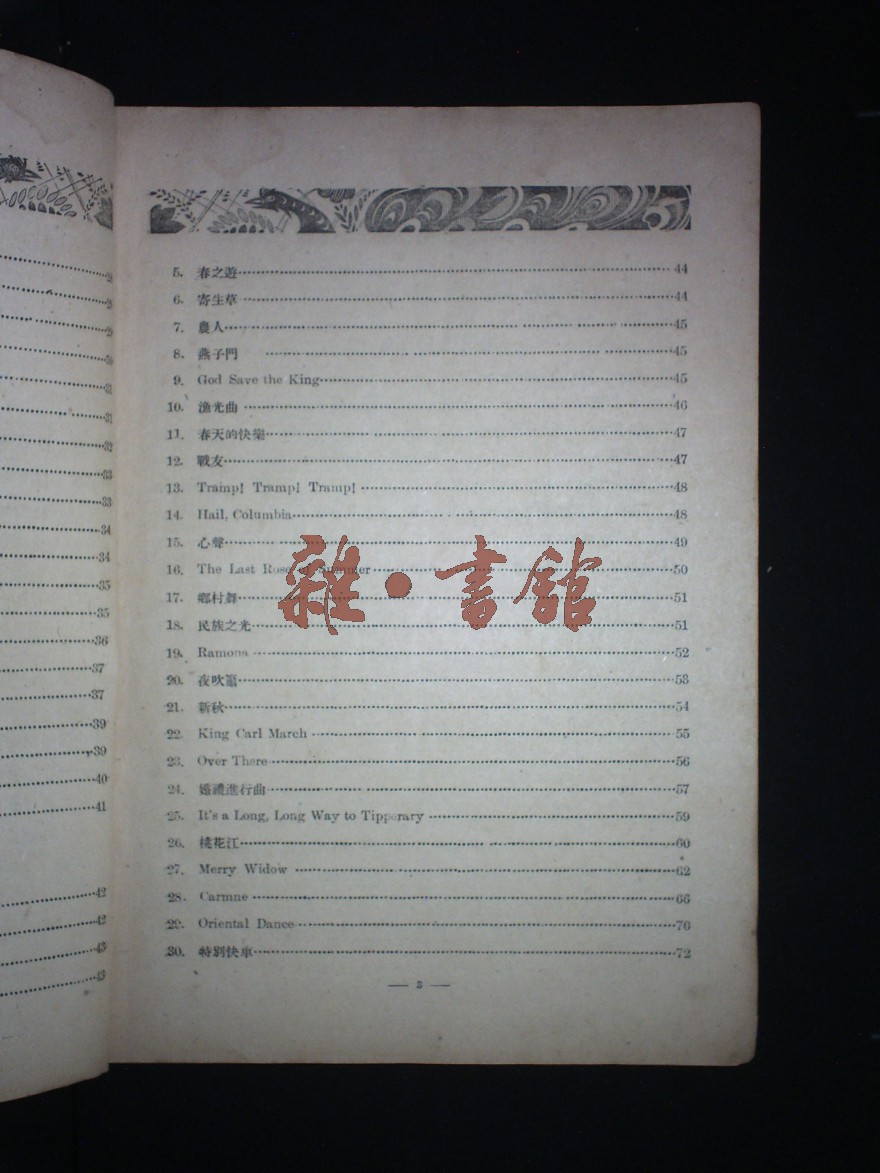 5. 春之遊 44
6. 寄生草 44
7. 農人 45
8. 燕子門 45
9. God Save the King 45
10. 漁光曲 46
11. 春天的快樂 47
12. 戰友 47
13. Tramp! Tramp! Tramp! 48
14. Hail, Columbia 48
15. 心聲 49
16. The Last Rose of Summer 50
17. 鄉村舞 51
18. 民族之光 51
19. Ramona 52
20. 夜吹簫 53
21. 新秋 54
22. King Carl March 55
23. Over There 56
24. 婚禮進行曲 57
25. It's a Long, Long Way to Tipperary 59
26. 桃花江 60
27. Merry Widow 62
28. Carmne 66
29. Oriental Dance 70
30. 特別快車 72
— 3 —
雜·書館
31
31
32
33
33
34
34
35
35
36
37
37
39
39
40
41
42
42
43
43